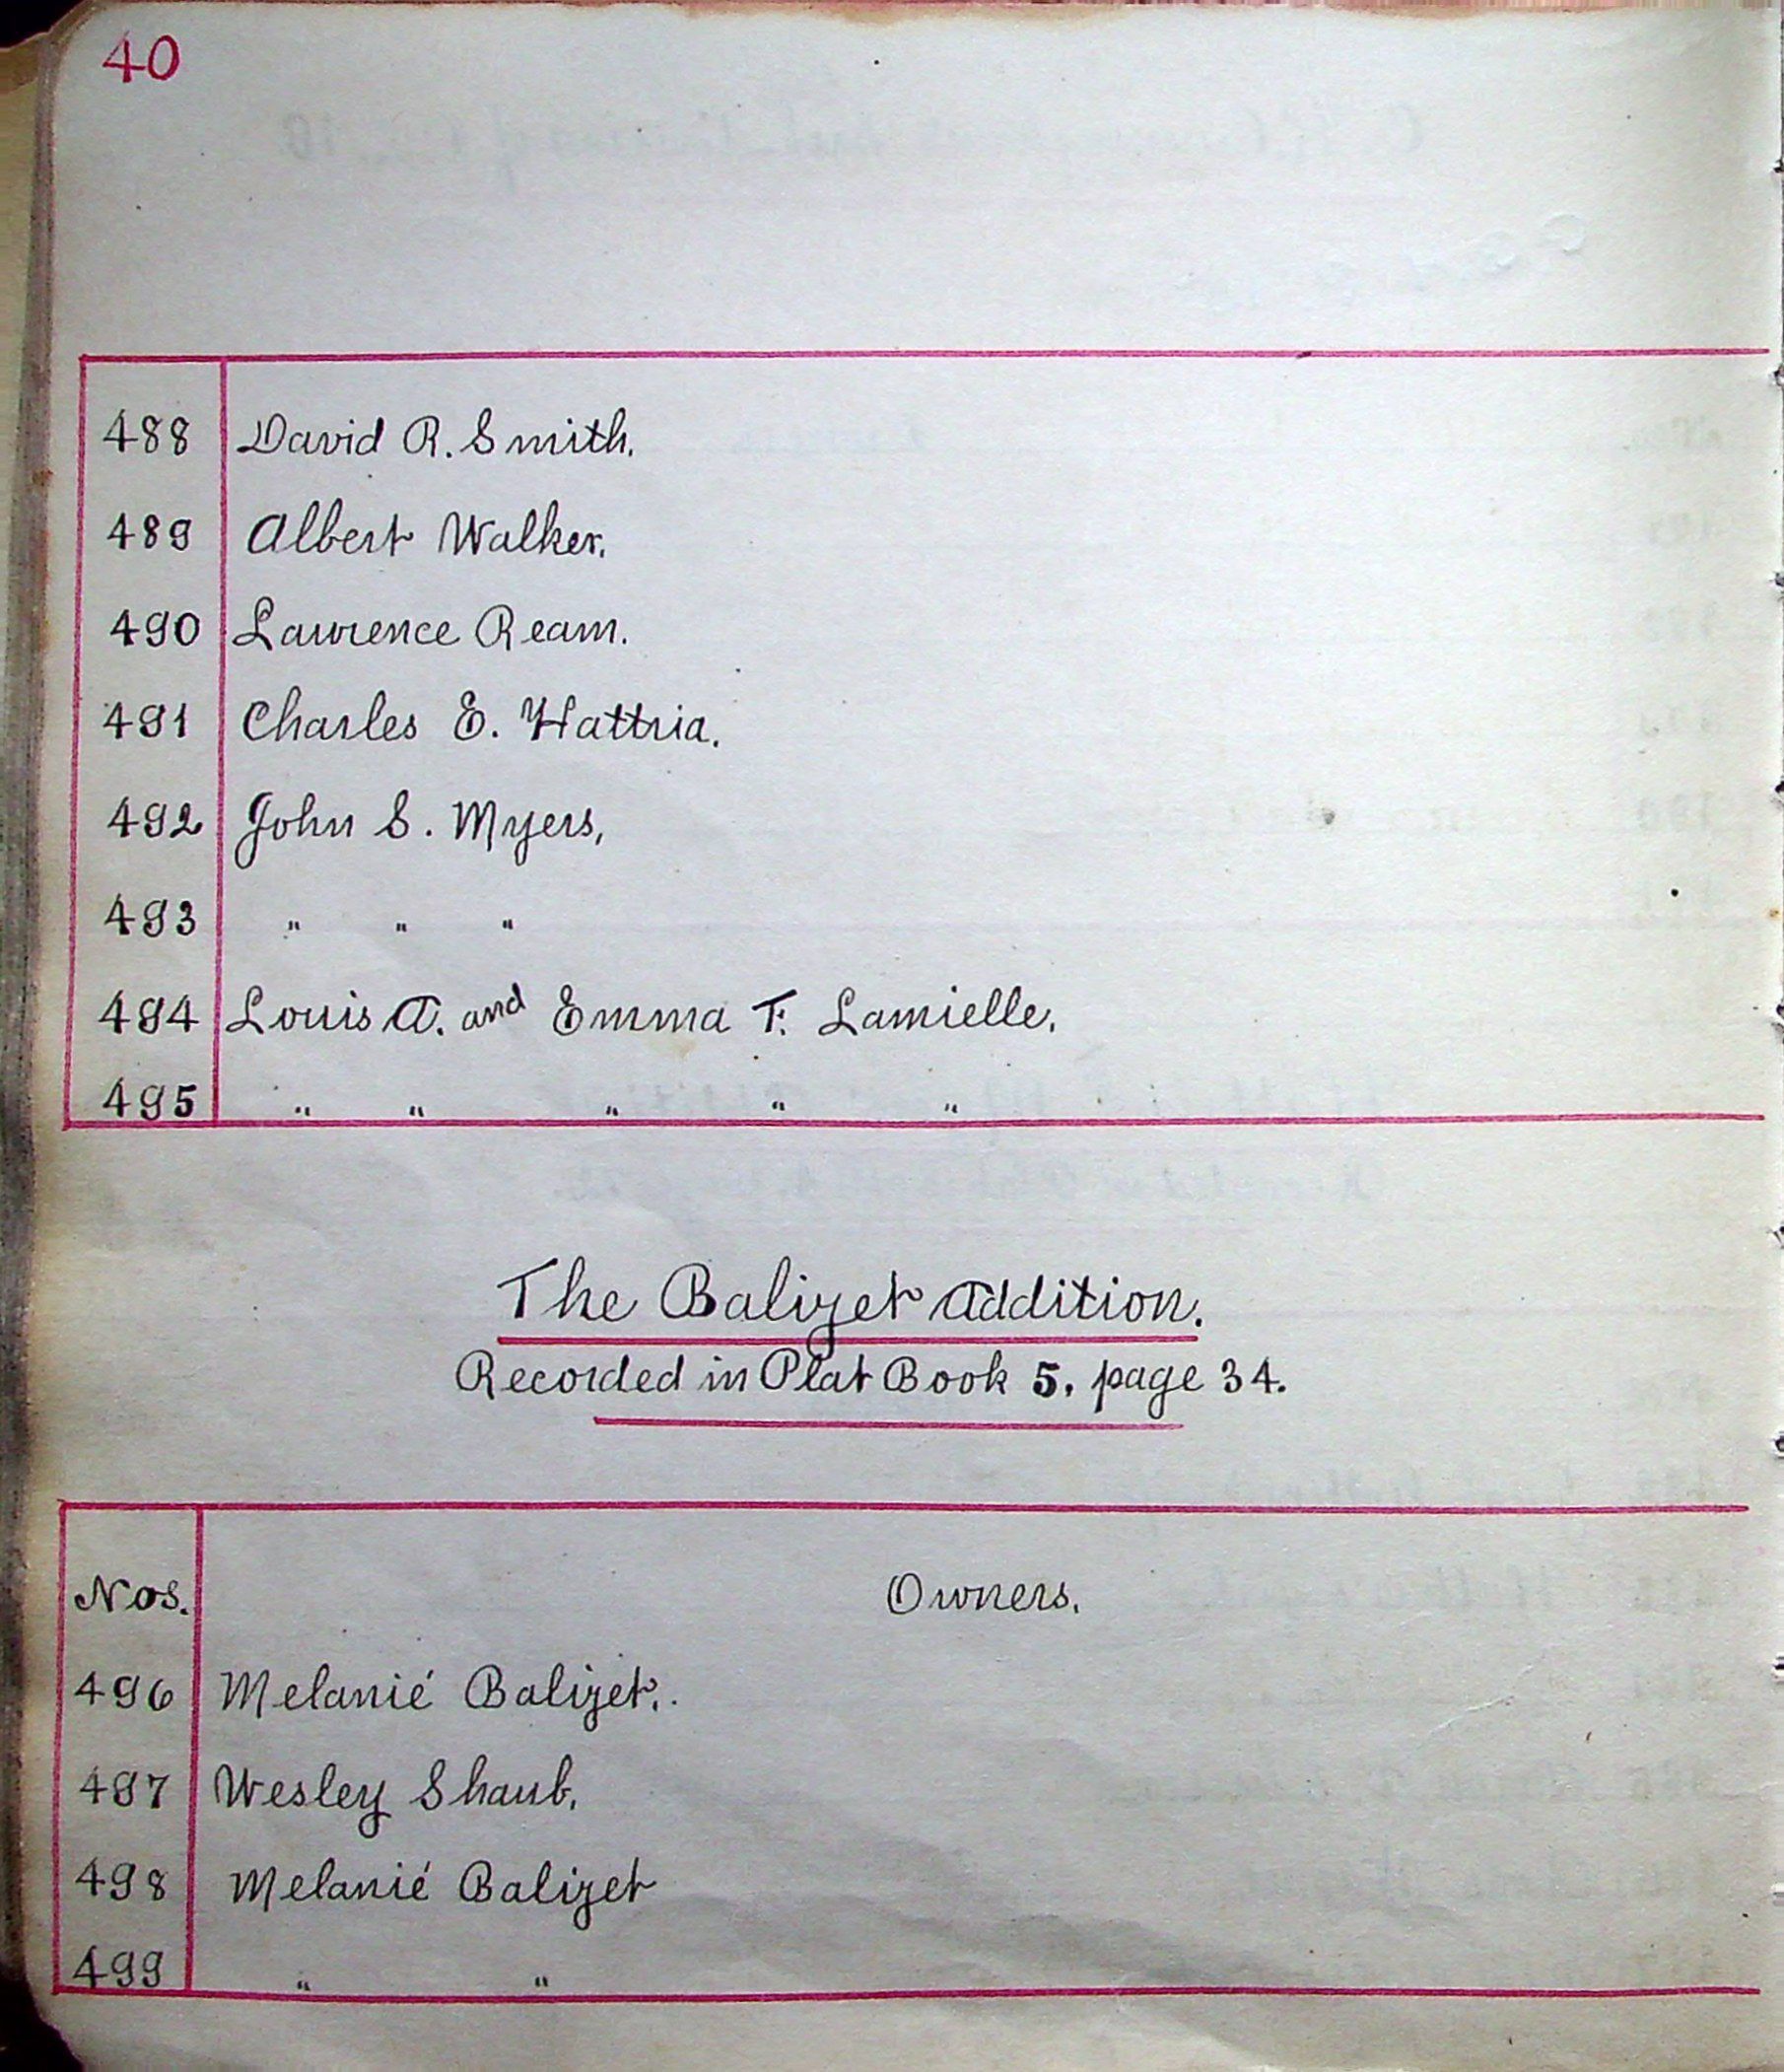 40
488 David R. Smith.
489 Albert Walker.
490 Lawrence Ream.
491 Charles E. Hattria.
492 John S. Myers,
493 " " "
494 Louis A. and Emma F. Lamielle.
495 " " " " "
The Balizet Addition.
Recorded in Plat Book 5, page 34.
Nos. Owners.
496 Melanié Balizet.
497 Wesley Shaub.
498 Melanié Balizet
499 " "